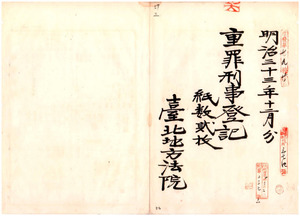 明治三十三年十二月分
重罪刑事登記
紙数貳枚
臺北地方法院